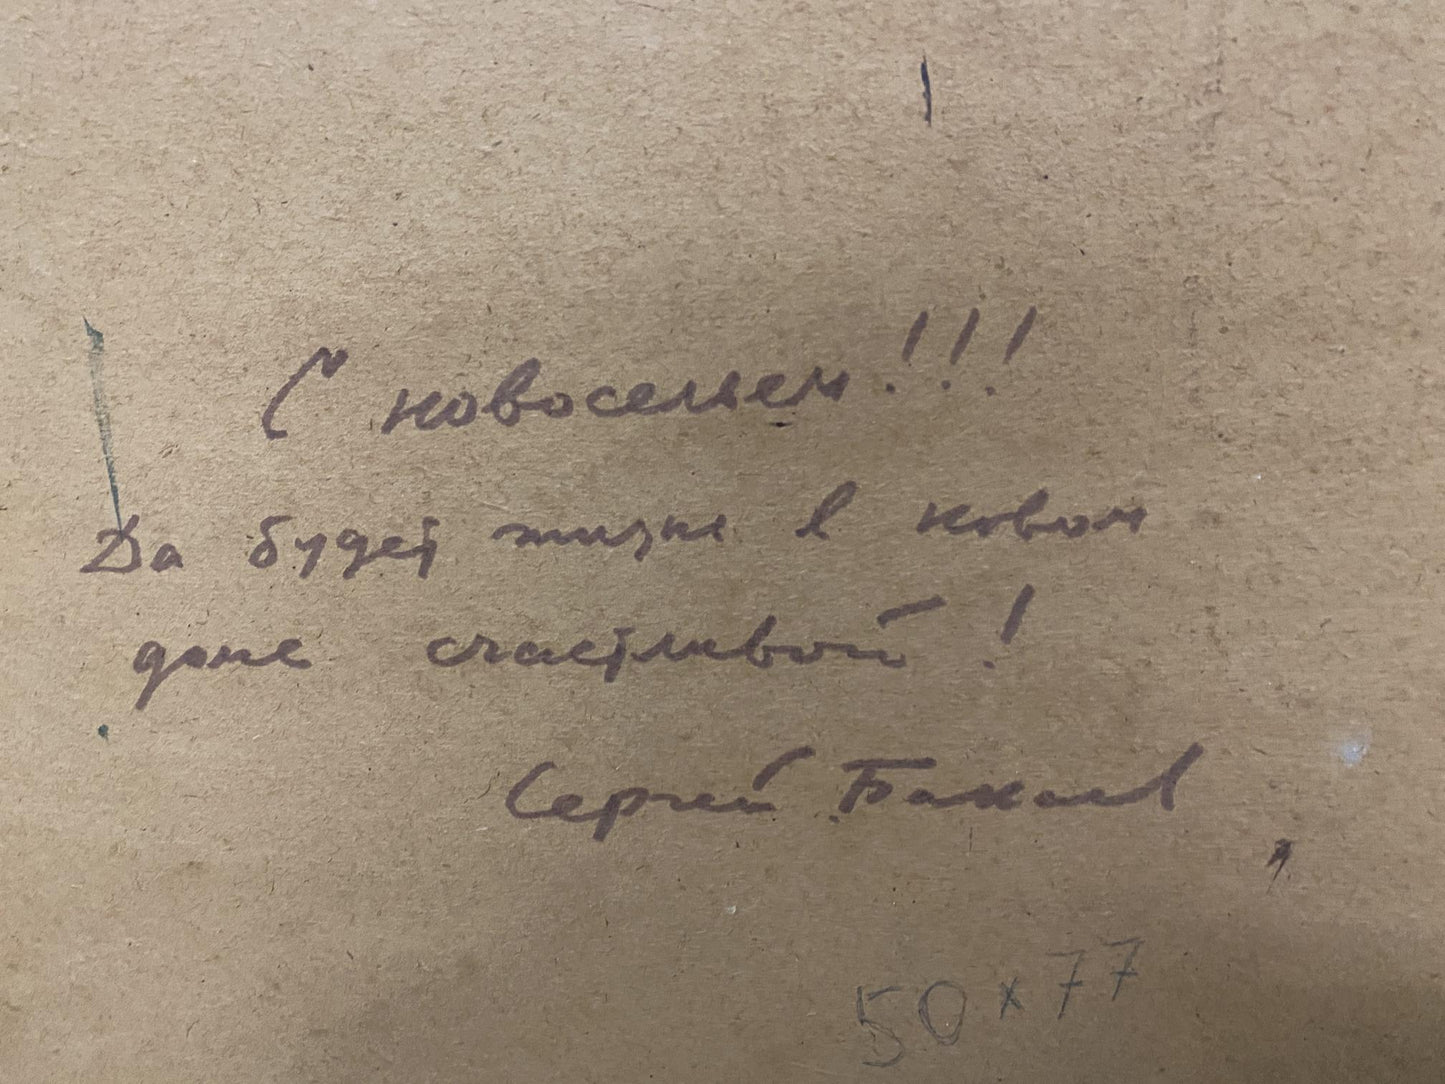 С новосельем!!!
Да будет жизнь в новом
доме счастливой!
Сергей Бакаев
50 x 77